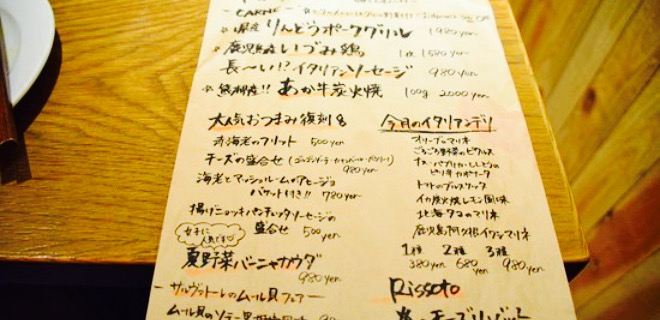 - CARNE -
県産りんどうポークグリル 1980yen
鹿児島産いづみ鶏 1枚 1580yen
長〜い!?イタリアンソーセージ 980yen
熊本産!!あか牛炭火焼 100g 2000yen
大人気おつまみ復刻
赤海老のフリット 500yen
チーズの盛合せ
980yen
海老とマッシュルームのアヒージョ
バケット付き!! 780yen
揚げニョッキパンチェッタソーセージの
盛合せ 500yen
女子に
人気です
夏野菜バーニャカウダ
980yen
-サルヴァトーレのムール貝フェアー-
今月のイタリアンデリ
オリーブのマリネ
ごろごろ野菜のピクルス
ナス・パプリカ・ししとうの
ピリ辛カポナータ
トマトのブルスケッタ
イカ炭火焼レモン風味
北海タコのマリネ
鹿児島阿久根イワシマリネ
1種 2種 3種
380yen 680yen 980yen
Rissoto